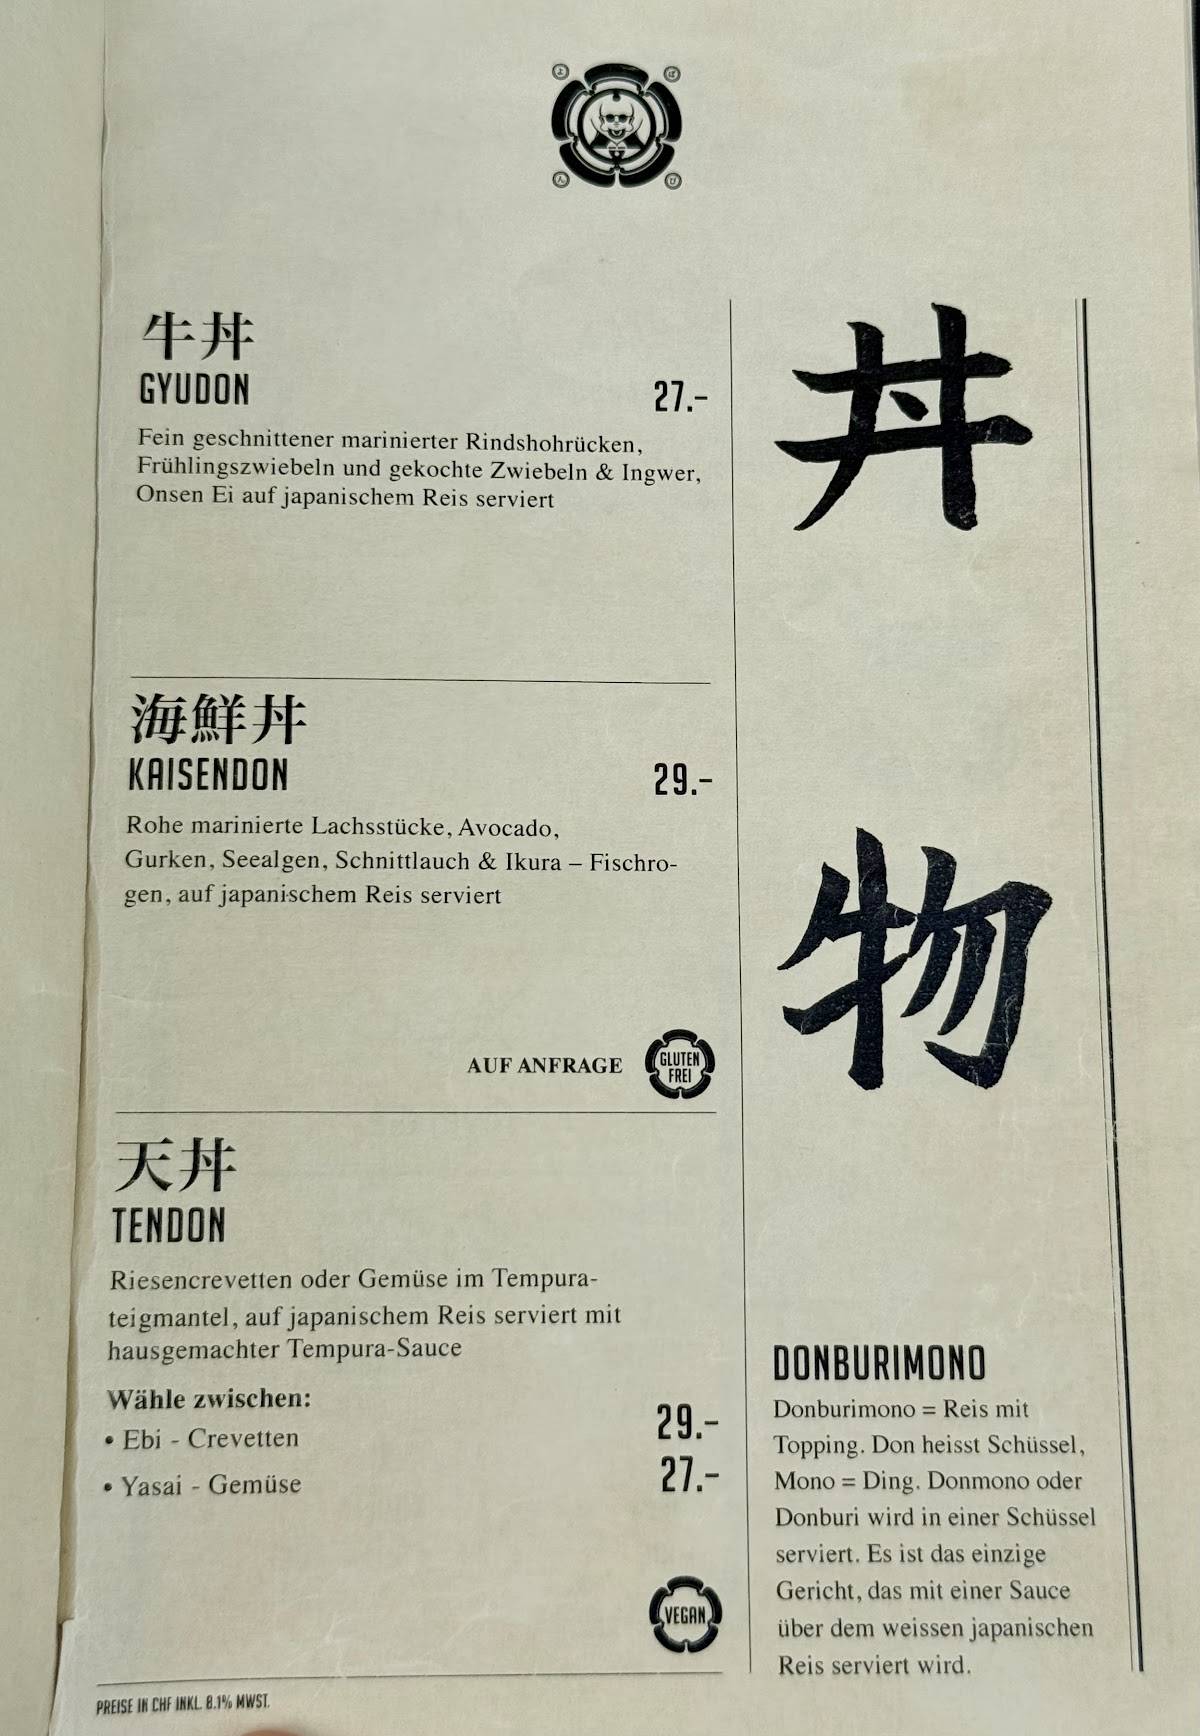 牛丼
GYUDON
27.-
Fein geschnittener marinierter Rindshohrücken,
Frühlingszwiebeln und gekochte Zwiebeln & Ingwer,
Onsen Ei auf japanischem Reis serviert
海鮮丼
KAISENDON
29.-
Rohe marinierte Lachsstücke, Avocado,
Gurken, Seealgen, Schnittlauch & Ikura – Fischro-
gen, auf japanischem Reis serviert
AUF ANFRAGE
GLUTEN
FREI
天丼
TENDON
Riesencrevetten oder Gemüse im Tempura-
teigmantel, auf japanischem Reis serviert mit
hausgemachter Tempura-Sauce
Wähle zwischen:
• Ebi - Crevetten 29.-
• Yasai - Gemüse 27.-
VEGAN
PREISE IN CHF INKL. 8.1% MWST.
丼
物
DONBURIMONO
Donburimono = Reis mit
Topping. Don heisst Schüssel,
Mono = Ding. Donmono oder
Donburi wird in einer Schüssel
serviert. Es ist das einzige
Gericht, das mit einer Sauce
über dem weissen japanischen
Reis serviert wird.